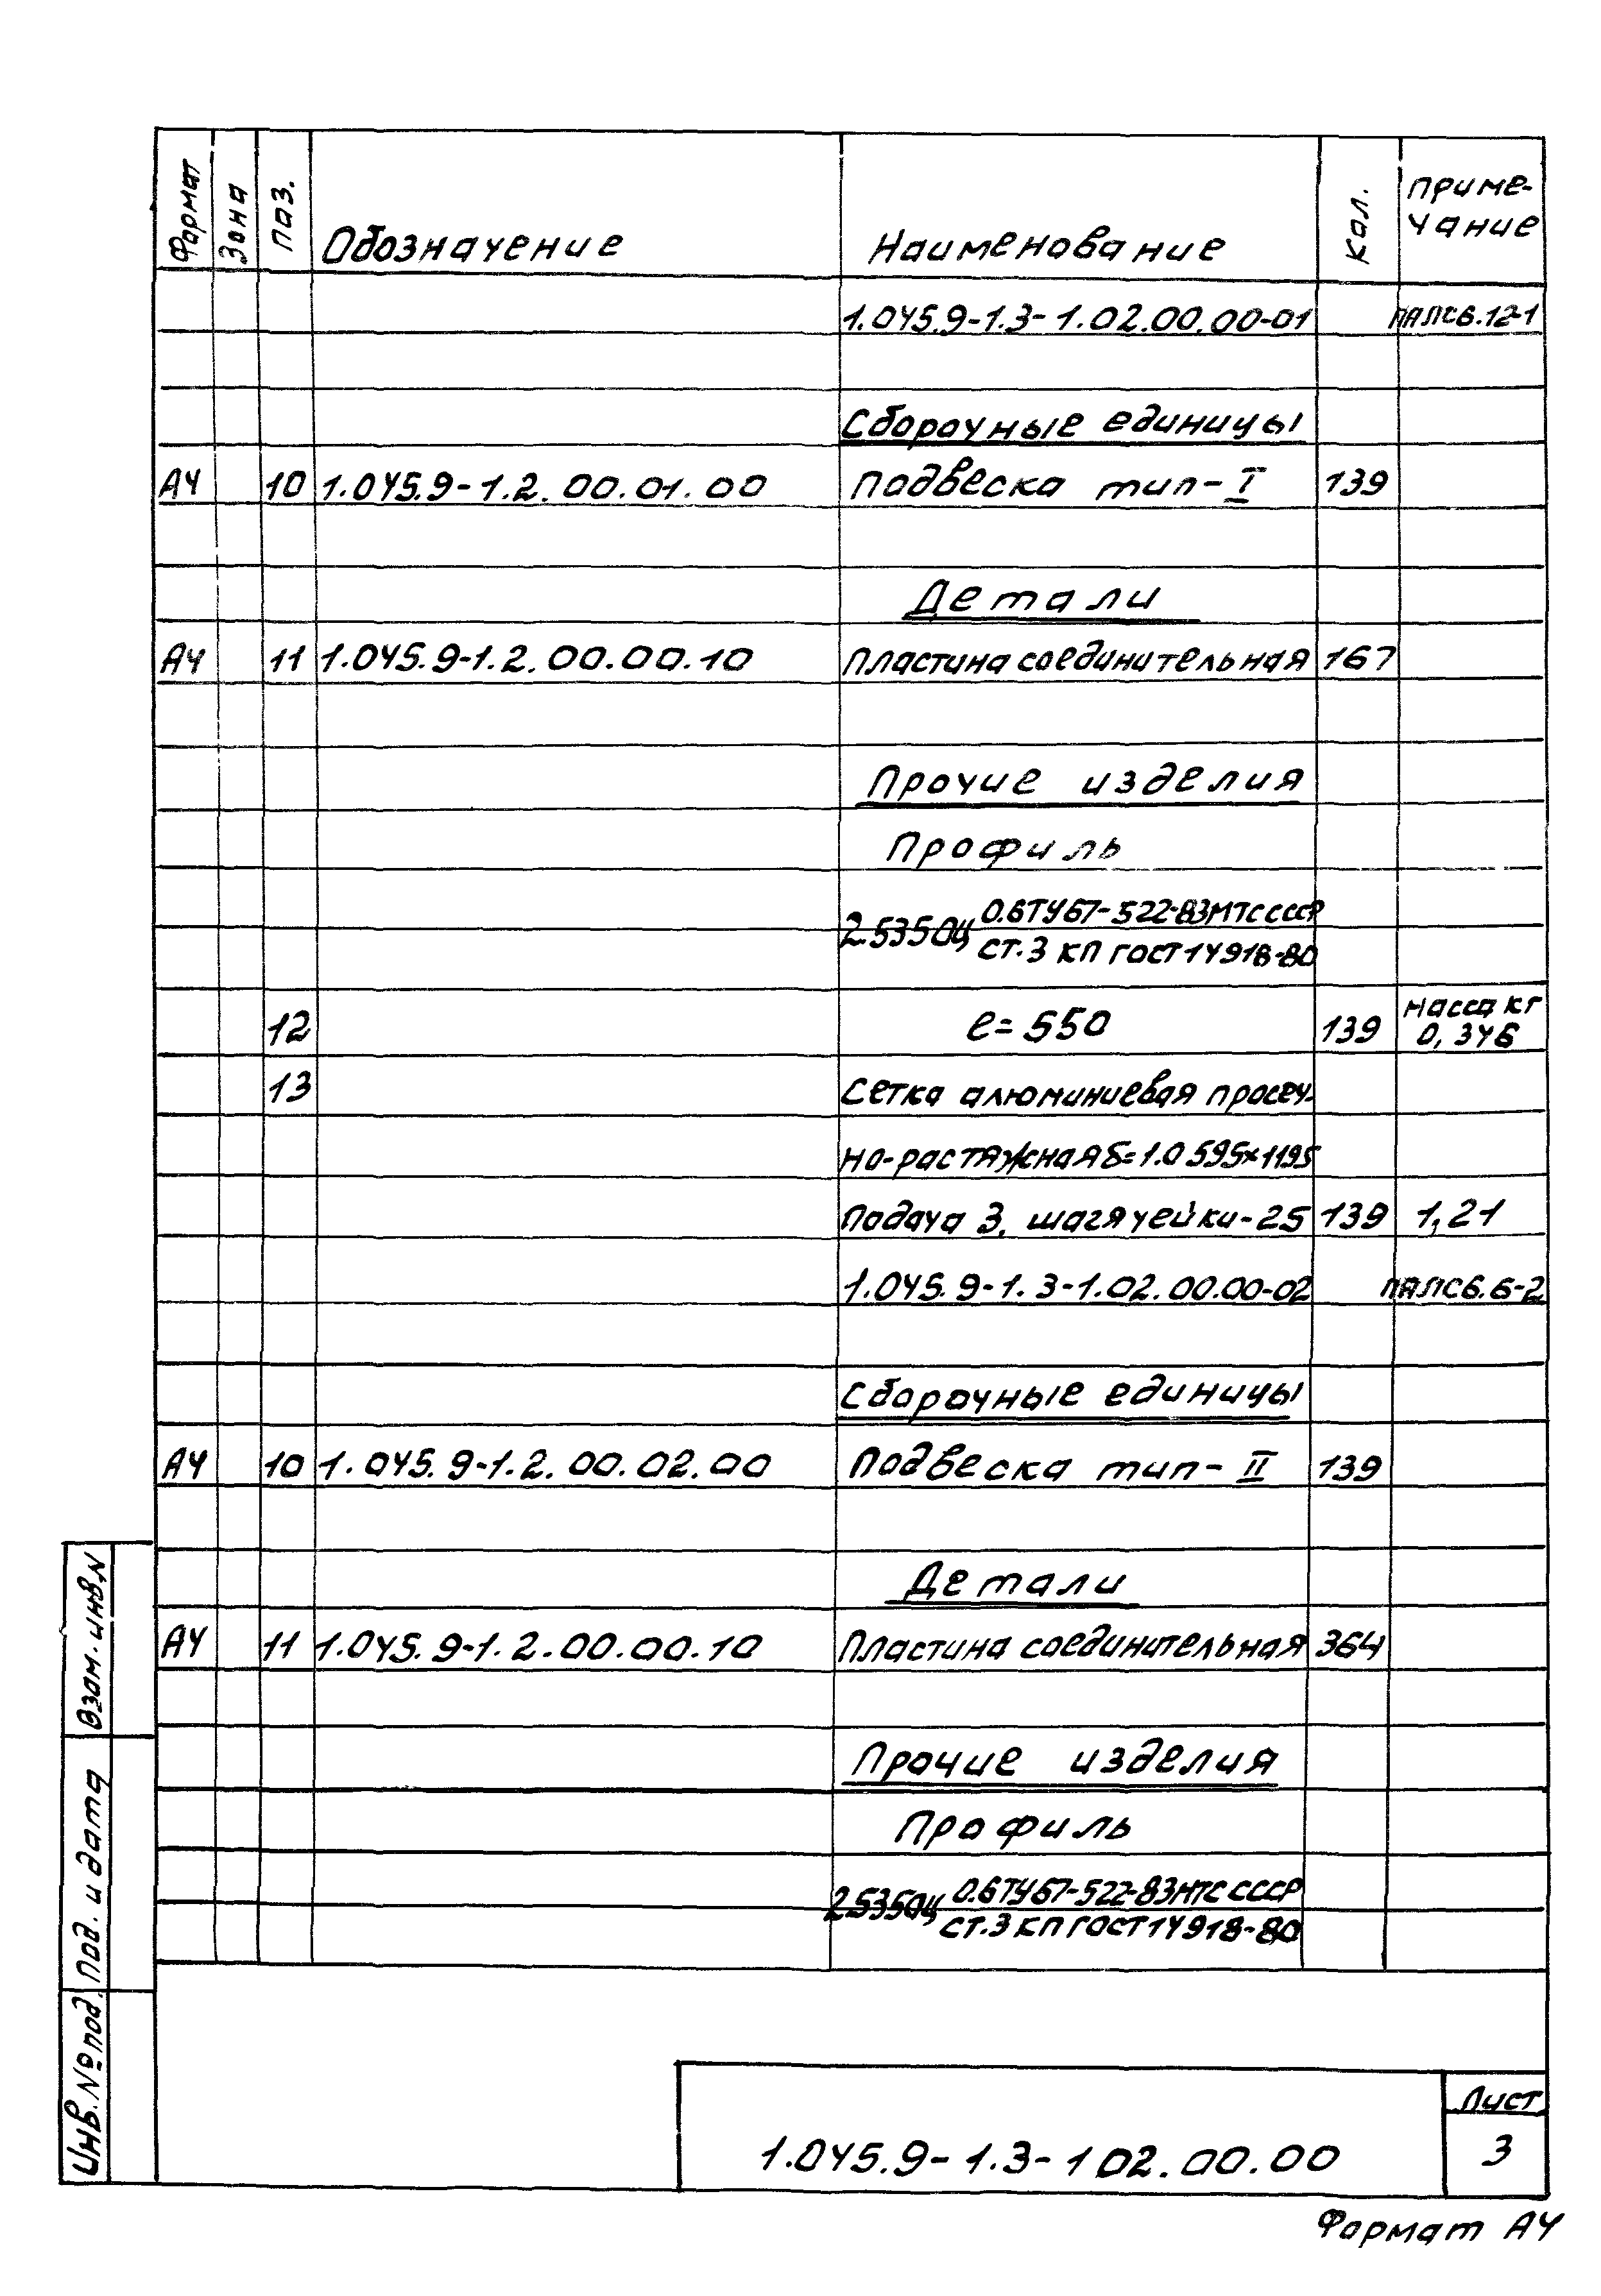 Формат Зона Поз. Обозначение Наименование Кол. Приме-
чание
1.045.9-1.3-1.02.00.00-01 ПАЛС6.12-1
Сборочные единицы
А4 10 1.045.9-1.2.00.01.00 Подвеска тип-I 139
Детали
А4 11 1.045.9-1.2.00.00.10 Пластина соединительная 167
Прочие изделия
Профиль
2.53504 0.6ТУ67-522-83МТС СССР
ст.3 кп ГОСТ14918-80
12 ℓ=550 139 Масса кг
0,346
13 Сетка алюминиевая просеч-
но-растяжная δ=1.0 595х1195
Подача 3, шаг ячейки-25 139 1,21
1.045.9-1.3-1.02.00.00-02 ПАЛС6.6-2
Сборочные единицы
А4 10 1.045.9-1.2.00.02.00 Подвеска тип-II 139
Детали
А4 11 1.045.9-1.2.00.00.10 Пластина соединительная 364
Прочие изделия
Профиль
2.53504 0.6ТУ67-522-83МТС СССР
ст.3 кп ГОСТ14918-80
Взам. инв.N
Под. и дата
Инв. № под.
1.045.9-1.3-1 02.00.00
Лист
3
Формат А4